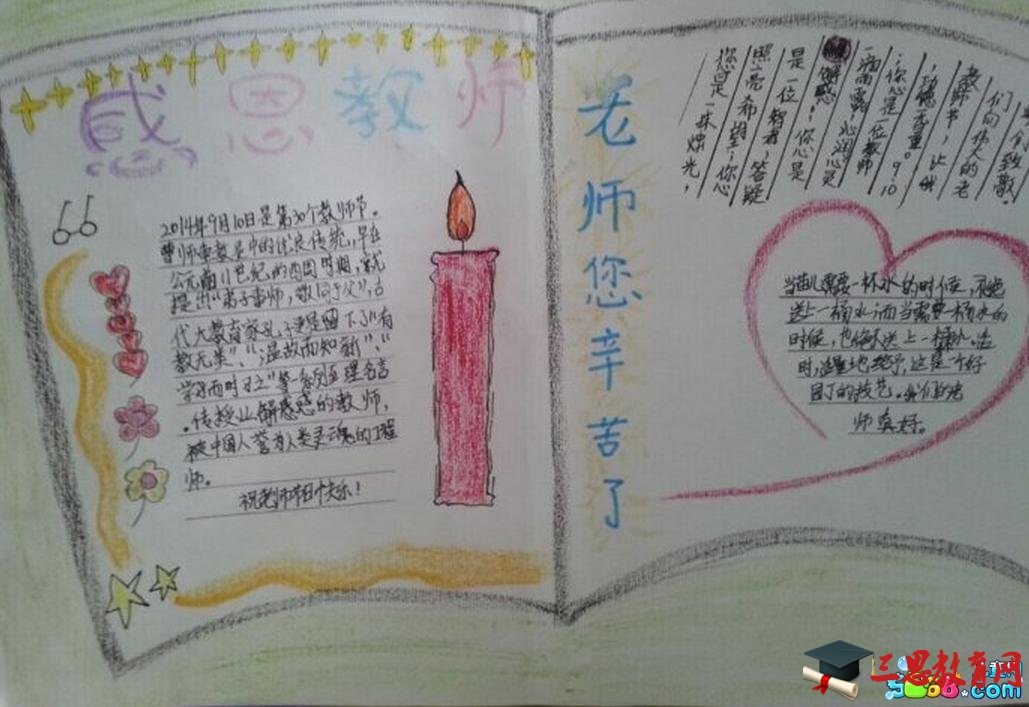 感恩教师
2014年9月10日是第30个教师节。
尊师重教是中的优良传统，早在
公元前11世纪的西周时期，就
提出“弟子事师，敬同于父”，古
代大教育家孔子更是留下了“有
教无类”、“温故而知新”、“
学而时习之”等一系列至理名言
。传授业解惑惑的教师，
被中国人誉为人类灵魂的工程
师。
祝老师节日快乐！
老师您辛苦了
您是一抹烛光，
照亮希望；您
是一位智者，答疑
解惑；您是
一场雨露，沁润心灵
；您是一位教师
，功德无量。9.10
教师节，让我
们向伟人的老
们致敬
一杯水的时候，
送上一桶水；而当需要一桶水的
时候，也
时，适量地给予，这是一个好
园丁的技艺。我们的老
师真好。
三思教育网
.com